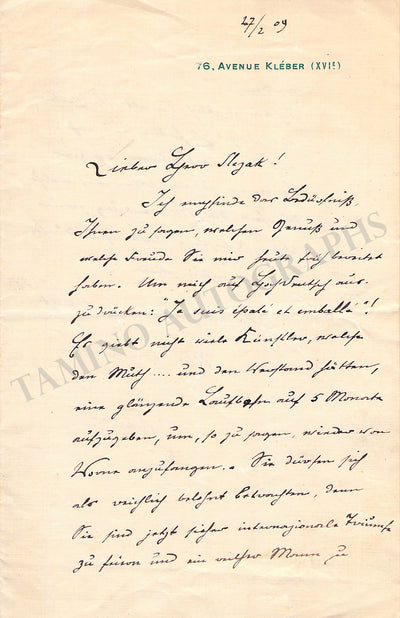 27/2 09
76, AVENUE KLÉBER (XVIe)
Lieber Herr Slezak!
Ich empfinde das Bedürfniß,
Ihnen zu sagen, welchen Genuß und
welche Freude Sie mir heute früh bereitet
haben. Um mich auf Hochdeutsch aus-
zudrücken: "Je suis épaté et emballé"!
Es giebt nicht viele Künstler, welche
den Muth.... und den Verstand hätten,
eine glänzende Laufbahn auf 5 Monate
aufzugeben, um, so zu sagen, wieder von
Vorne anzufangen. Sie dürfen sich
als reichlich belohnt betrachten, denn
Sie sind jetzt sicher internazionale Triumfe
zu feiern und ein reicher Mann zu
TAMINO AUTOGRAPHS